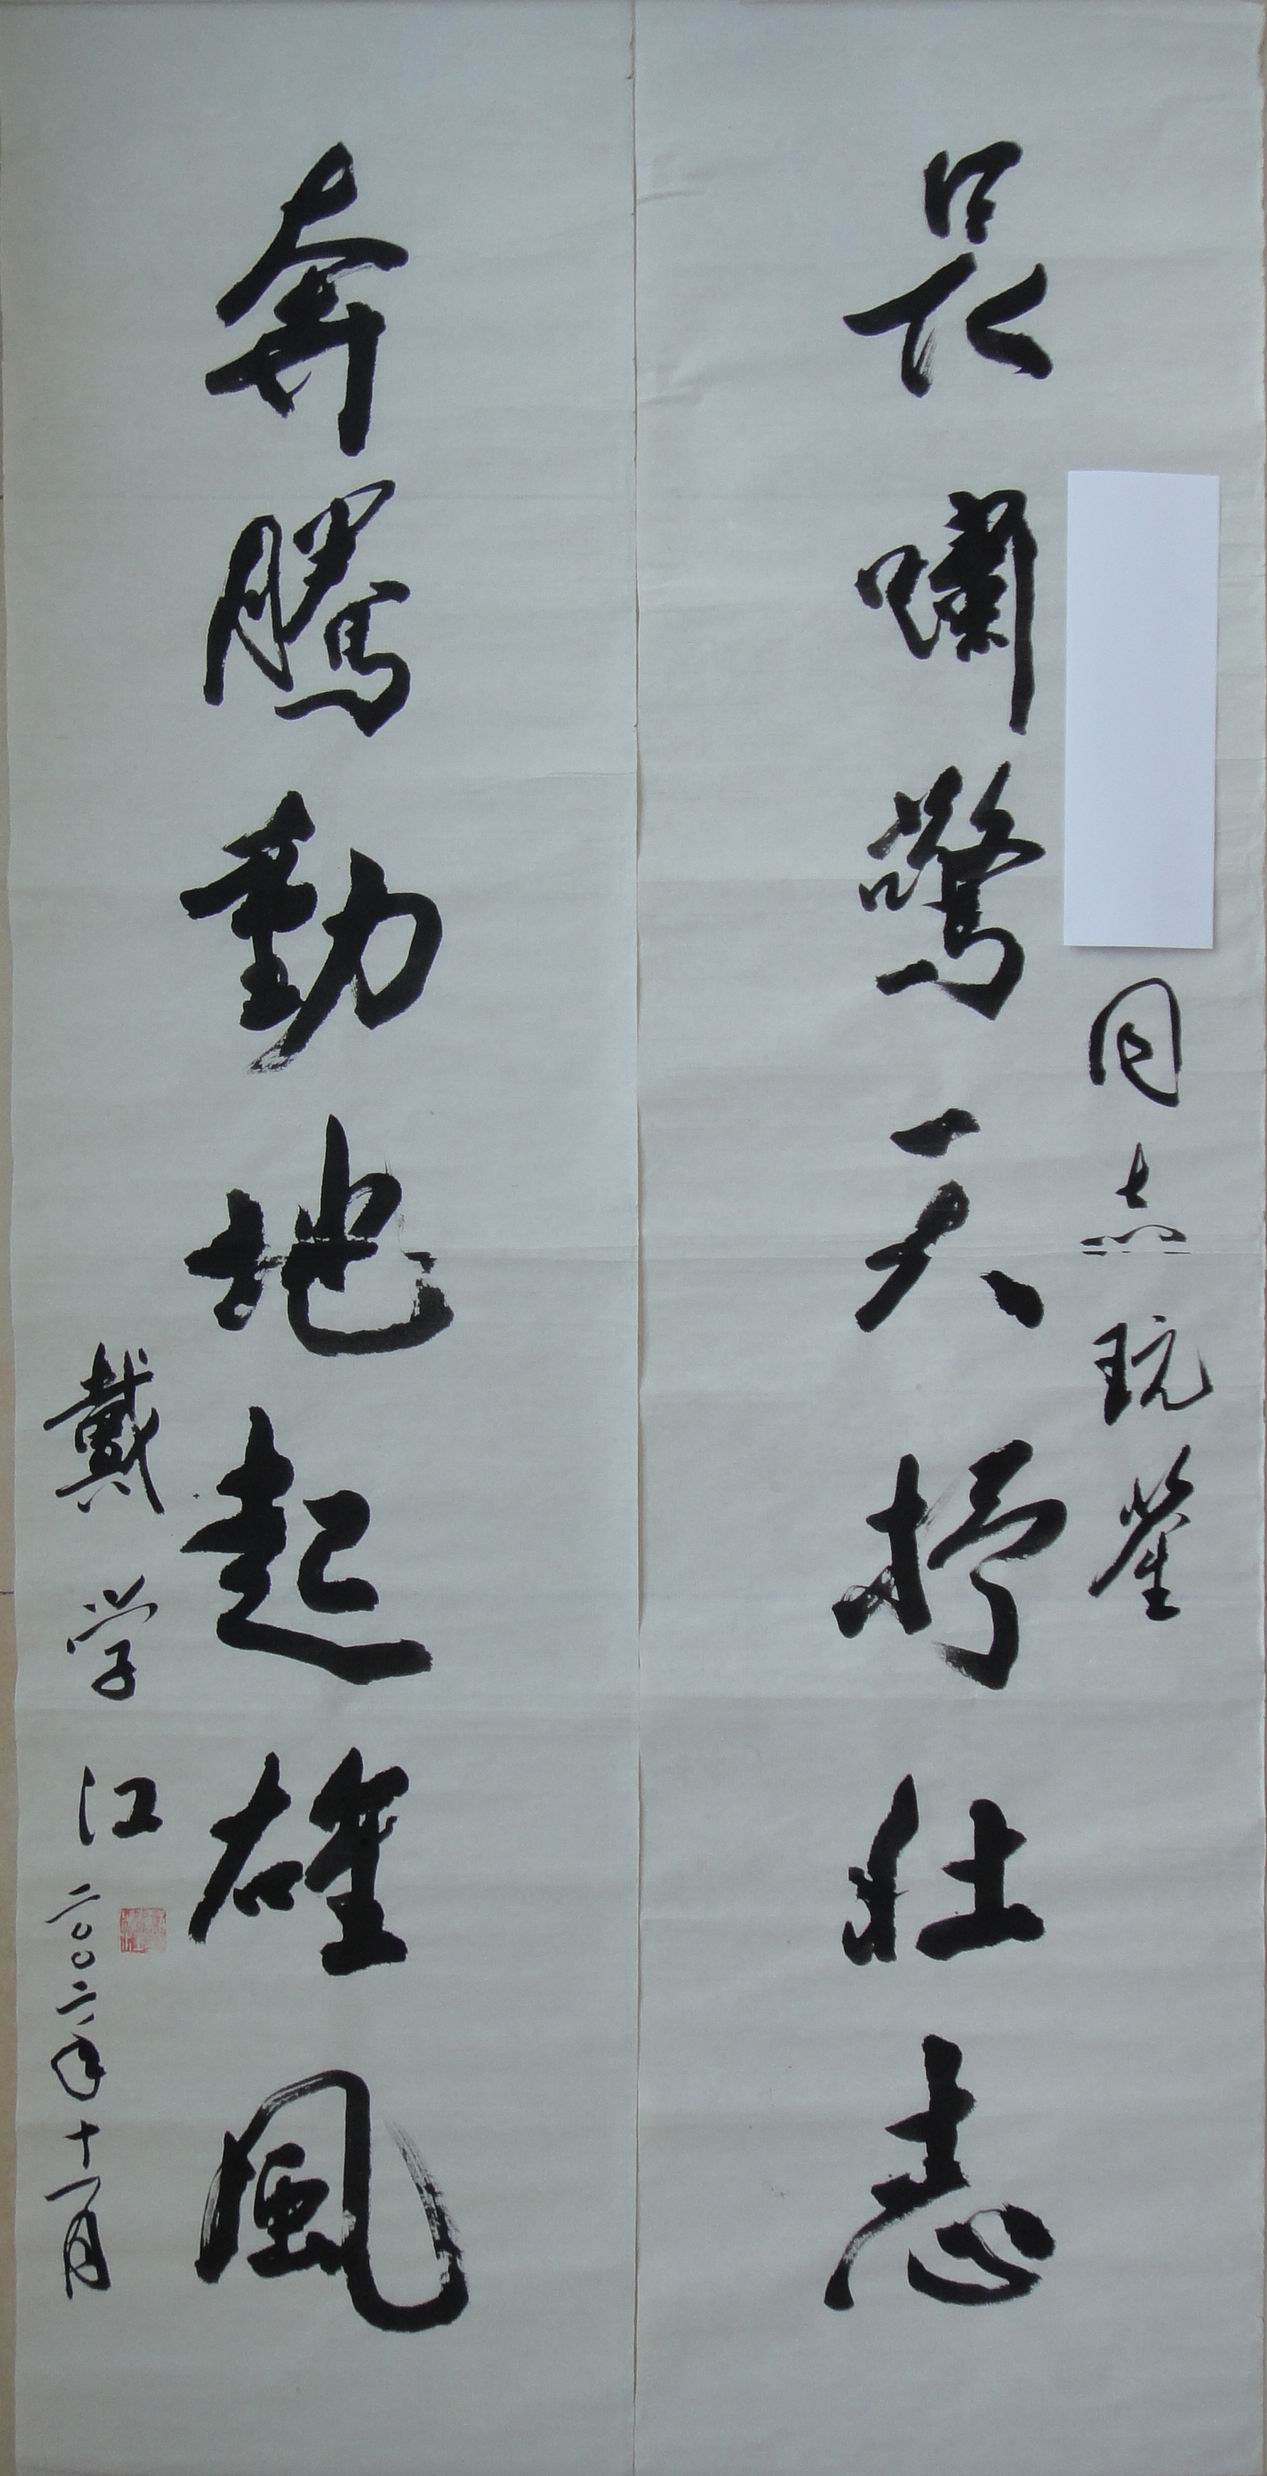 同志
嘯驚天抒壮志
奔騰動地起雄風
戴学江
二〇〇二年十一月